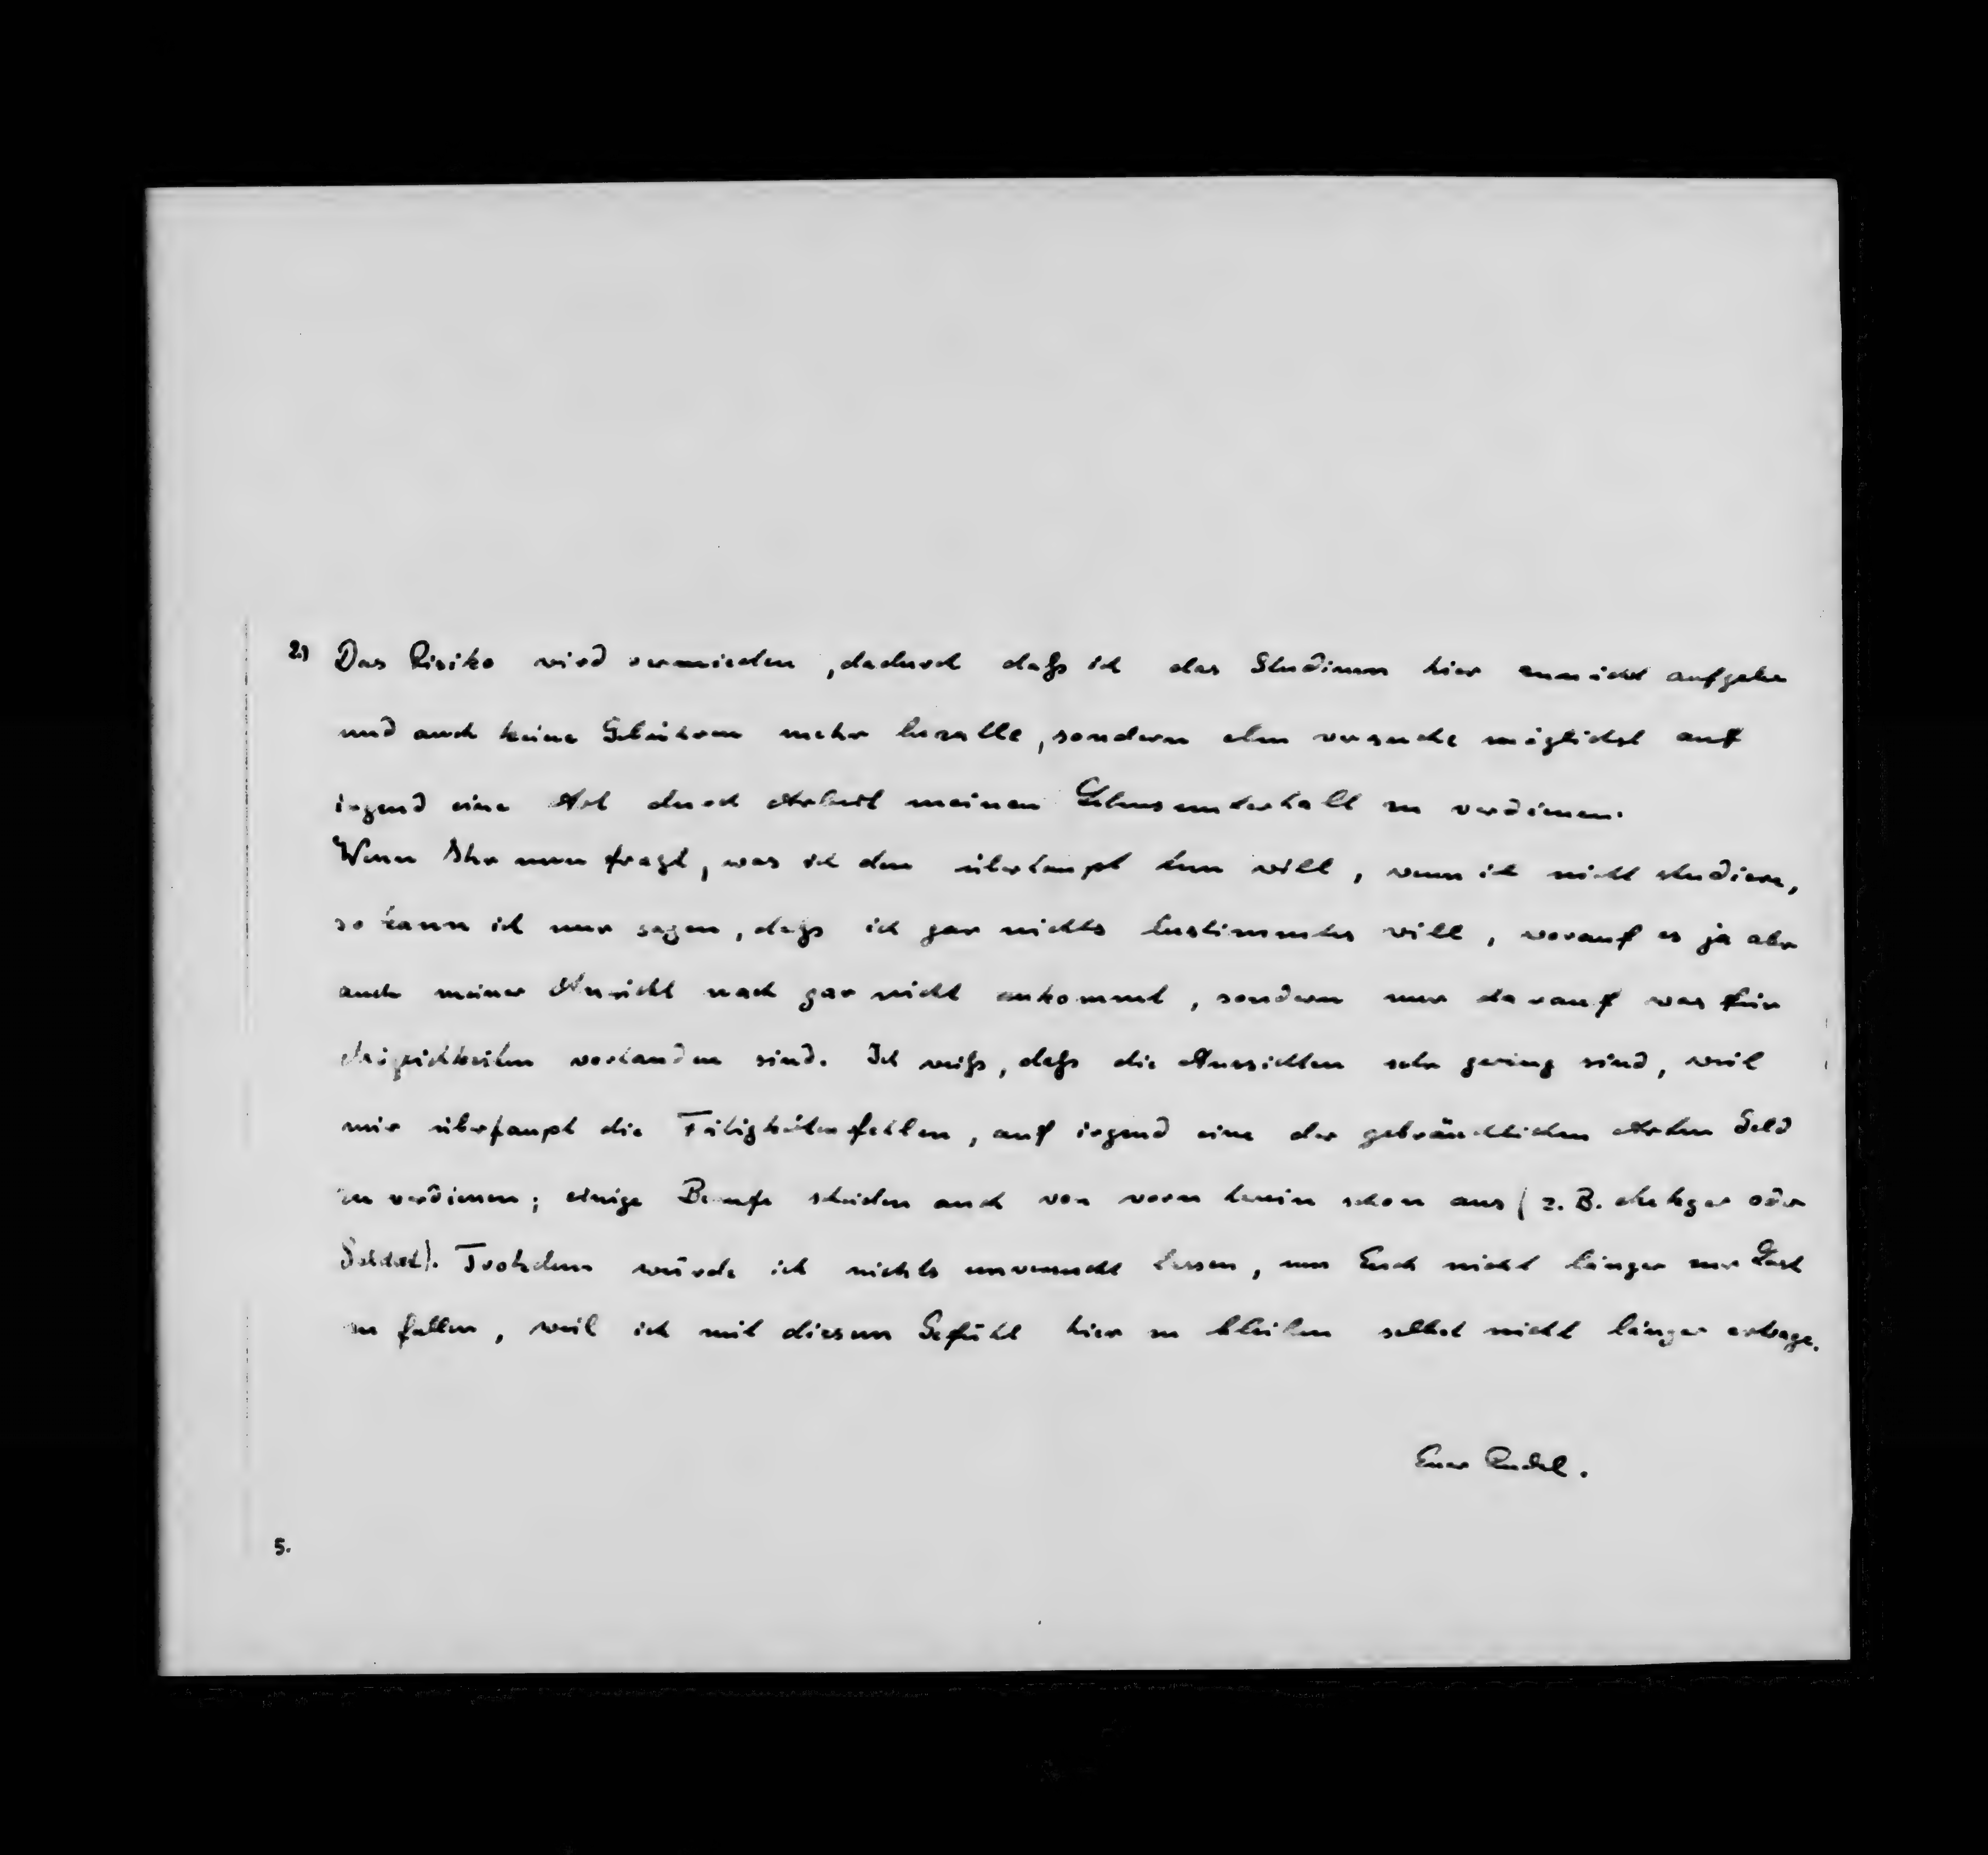 2.) Das Risiko wird vermieden, dadurch daß ich das Studium hier zunächst aufgebe
und auch keine Gebühren mehr bezahle, sondern eben versuche möglichst auf
irgend eine Art durch Arbeit meinen Lebensunterhalt zu verdienen.
Wenn Ihr nun fragt, was ich den überhaupt tun will, wenn ich nicht studiere,
so kann ich nur sagen, daß ich gar nichts bestimmtes will, worauf es ja aber
auch meiner Ansicht nach gar nicht ankommt, sondern nur darauf was für
Möglichkeiten vorhanden sind. Ich weiß, daß die Aussichten sehr gering sind, weil
mir überhaupt die Fähigkeiten fehlen, auf irgend eine der gebräuchlichen Arten Geld
zu verdienen; einige Berufe scheiden auch von vorn herein schon aus (z. B. Metzger oder
Soldat). Trotzdem würde ich nichts unversucht lassen, um Euch nicht länger zur Last
zu fallen, weil ich mit diesem Gefühl hier zu bleiben selbst nicht länger ertrage.
Euer Rudel.
5.